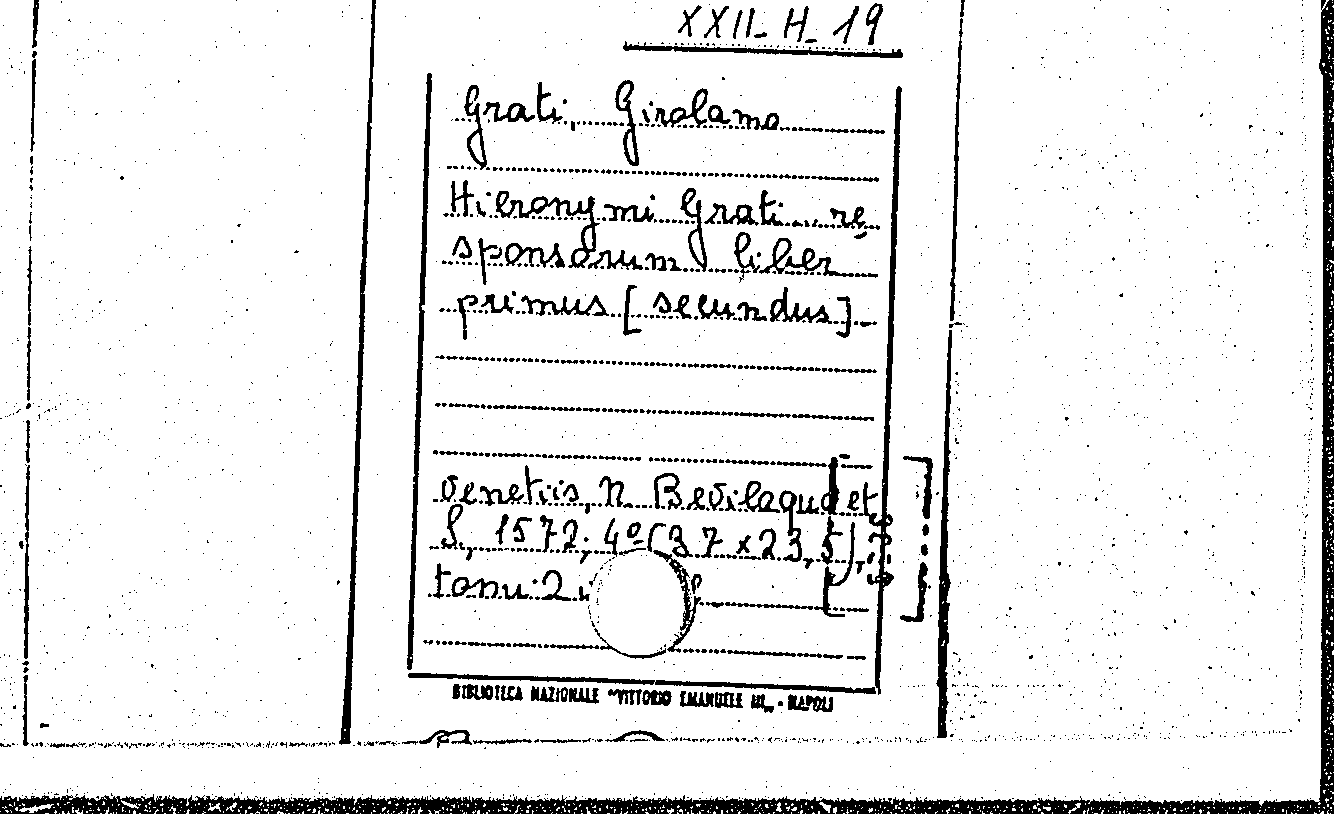 XXII- H- 19
Grati, Girolamo
Hieronymi Grati... re
sponsorum liber
primus [secundus]
Venetiis, N. Bevilaqua et
S., 1572; 4º (37 x 23,5),
tomi 2
BIBLIOTECA NAZIONALE "VITTORIO EMANUELE III„ - NAPOLI